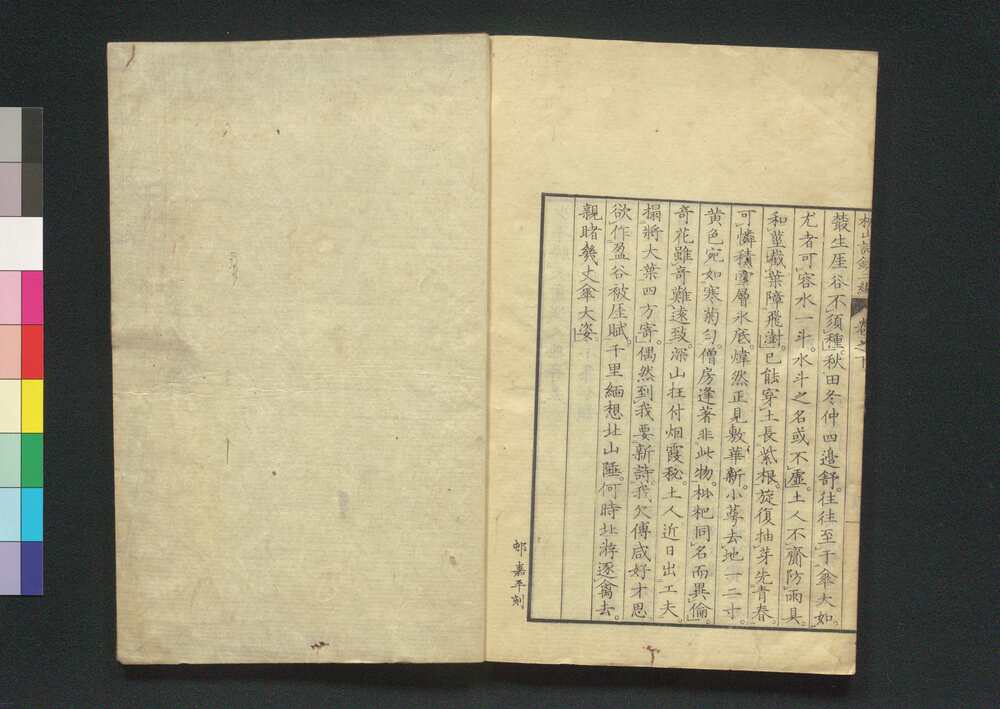 叢生厓谷不須種。秋田冬仲四邊舒。往往至于傘大如。
尤者可容水一斗。水斗之名或不虛。土人不齎防雨具。
和莖截葉障飛澍。已能穿土長紫根。旋復抽芽先青春。
可憐積雪層氷底。煒然正見敷華新。小萼去地一二寸。
黃色宛如寒菊勻。僧房逢著非此物。枇杷同名而異倫。
奇花雖奇難遠致。深山抂付烟霞秘。土人近日出工夫。
搨將大葉四方寄。偶然到我要新詩。我欠傅咸好才思
欲作盈谷被厓賦。千里緬想北山陲。何時北將逐禽去。
親睹幾丈傘大姿。
邨嘉平刻